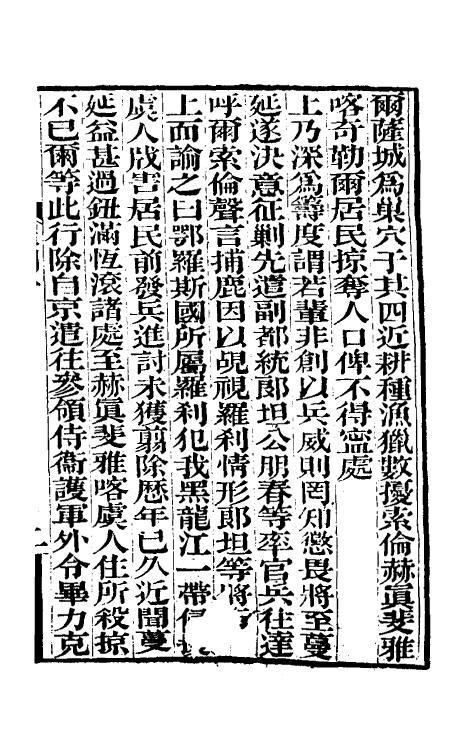 爾薩城為巢穴于其四近耕種漁獵數擾索倫赫眞斐雅
喀奇勒爾居民掠奪人口俾不得寧處
上乃深為籌度謂若輩非創以兵威則罔知懲畏將至蔓
延遂決意征剿先遣副都統郎坦公朋春等率官兵往達
呼爾索倫聲言捕鹿因以覘視羅刹情形郎坦等
上面諭之曰鄂羅斯國所屬羅刹犯我黑龍江一帶侵
虞人戕害居民前發兵進討未獲翦除歷年已久近聞蔓
延益甚過鈕滿恆滾諸處至赫眞斐雅喀虞人住所殺掠
不已爾等此行除自京遣往參領侍衞護軍外令畢力克